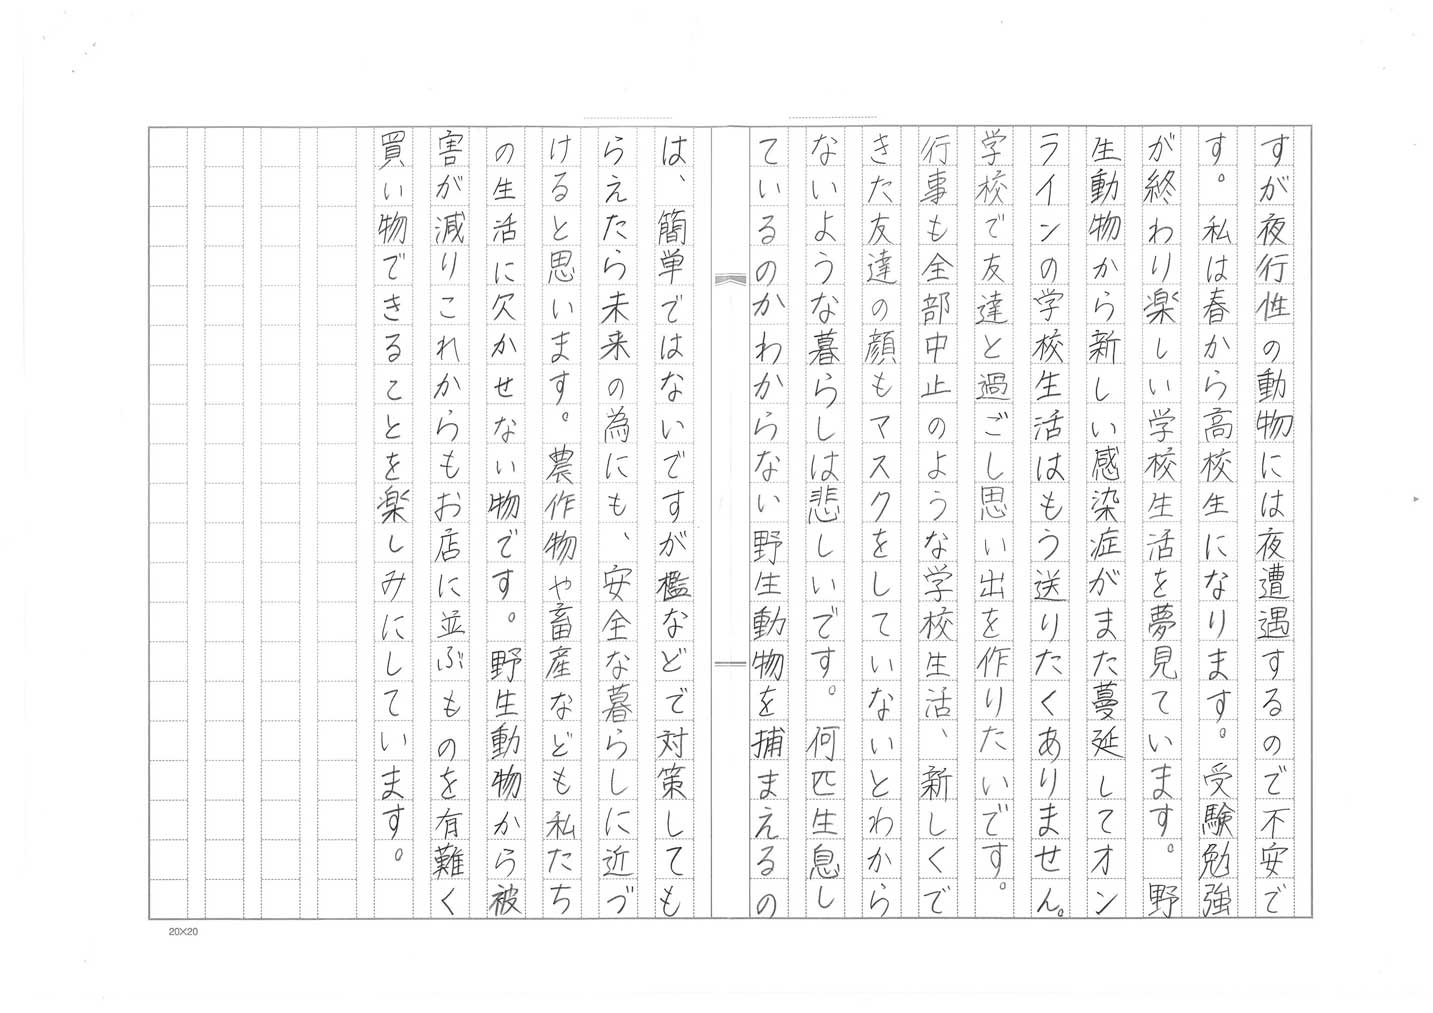 すが夜行性の動物には夜遭遇するので不安で
す。私は春から高校生になります。受験勉強
が終わり楽しい学校生活を夢見ています。野
生動物から新しい感染症がまた蔓延してオン
ラインの学校生活はもう送りたくありません。
学校で友達と過ごし思い出を作りたいです。
行事も全部中止のような学校生活、新しくで
きた友達の顔もマスクをしていないとわから
ないような暮らしは悲しいです。何匹生息し
ているのかわからない野生動物を捕まえるの
は、簡単ではないですが檻などで対策しても
らえたら未来の為にも、安全な暮らしに近づ
けると思います。農作物や畜産なども私たち
の生活に欠かせない物です。野生動物から被
害が減りこれからもお店に並ぶものを有難く
買い物できることを楽しみにしています。
20×20